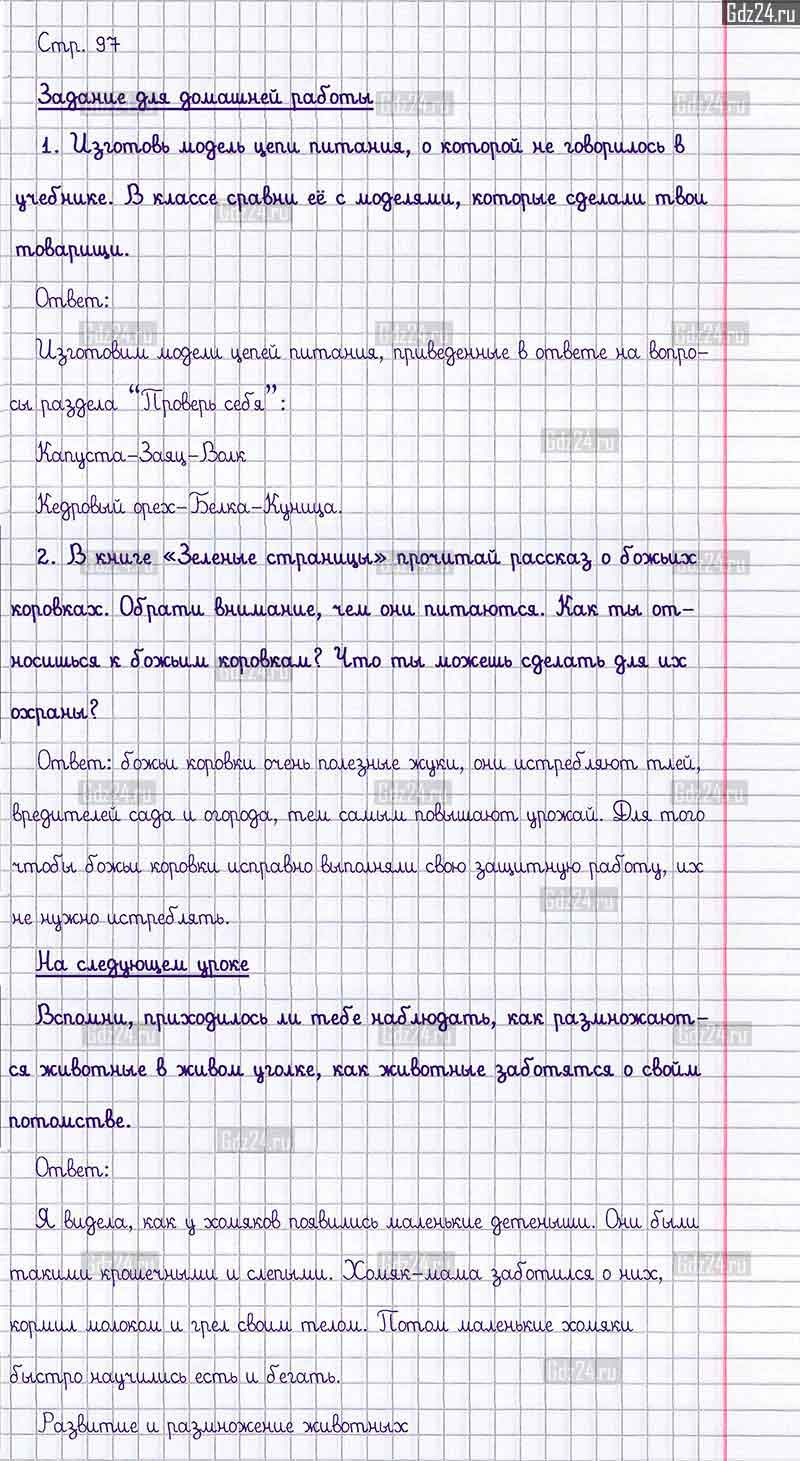 Gdz24.ru
Стр. 97
Задание для домашней работы
1. Изготовь модель цепи питания, о которой не говорилось в
учебнике. В классе сравни её с моделями, которые сделали твои
товарищи.
Ответ:
Изготовим модели цепей питания, приведенные в ответе на вопро-
сы раздела “Проверь себя”:
Капуста-Заяц-Волк
Кедровый орех-Белка-Куница.
2. В книге «Зеленые страницы» прочитай рассказ о божьих
коровках. Обрати внимание, чем они питаются. Как ты от-
носишься к божьим коровкам? Что ты можешь сделать для их
охраны?
Ответ: божьи коровки очень полезные жуки, они истребляют тлей,
вредителей сада и огорода, тем самым повышают урожай. Для того
чтобы божьи коровки исправно выполняли свою защитную работу, их
не нужно истреблять.
На следующем уроке
Вспомни, приходилось ли тебе наблюдать, как размножают-
ся животные в живом уголке, как животные заботятся о своём
потомстве.
Ответ:
Я видела, как у хомяков появились маленькие детеныши. Они были
такими крошечными и слепыми. Хомяк-мама заботился о них,
кормил молоком и грел своим телом. Потом маленькие хомяки
быстро научились есть и бегать.
Развитие и размножение животных